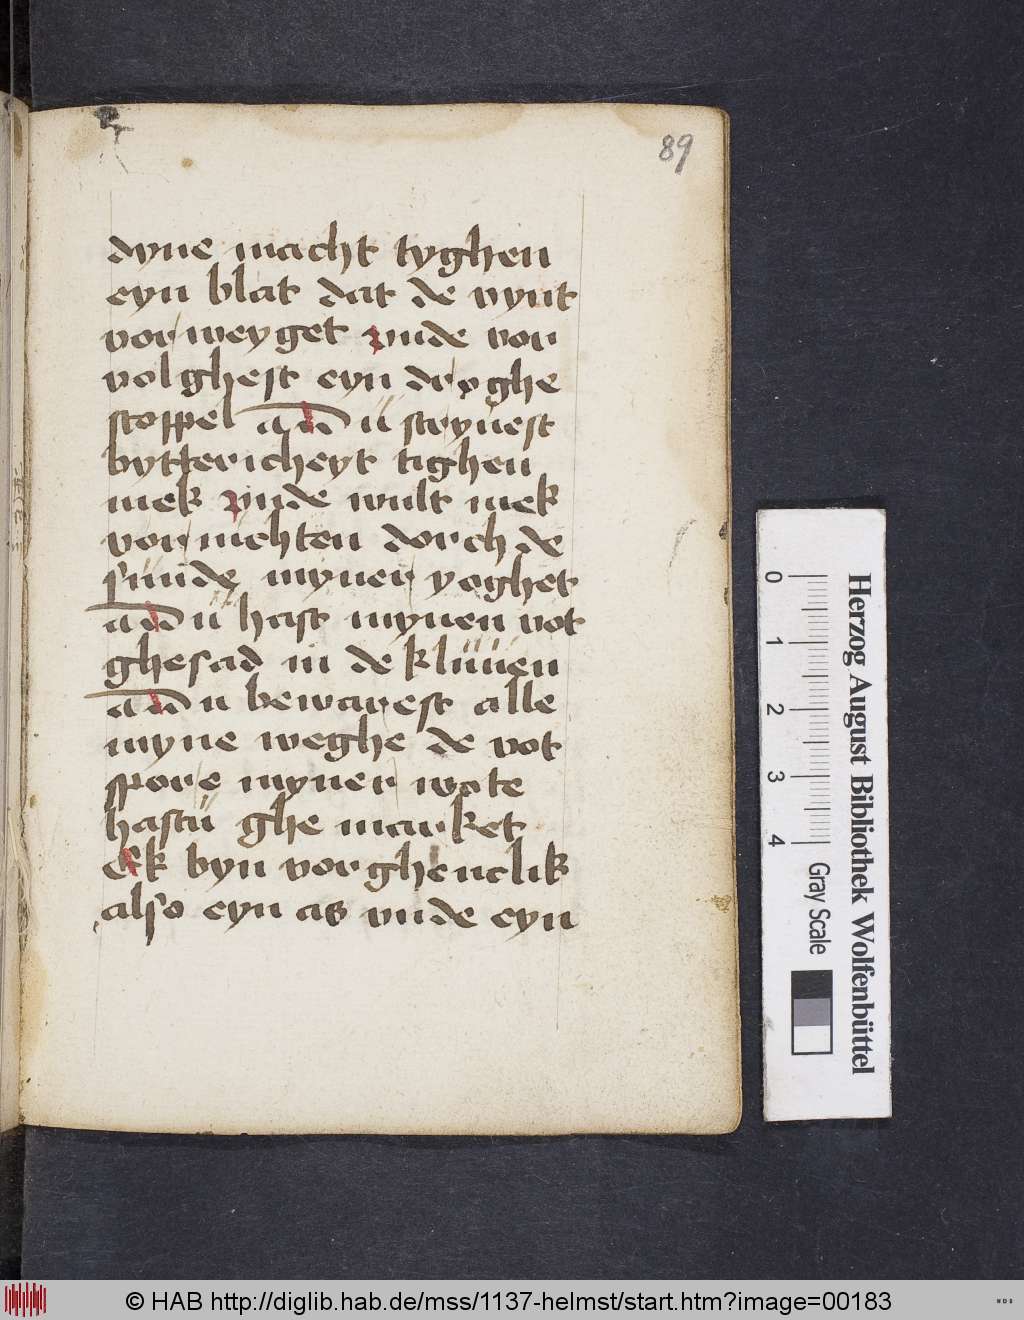 89
dyne macht tyghen
eyn blat dat de wynt
vorweyget vnde vor
volghest eyn droghe
stoppel ü scryuest
byttericheyt tighen
mek vnde wult mek
vornichten dorch de
sunde myner yoghet
hast mynen vot
ghesad in de klüuen
bewarest alle
myne weghe de vot
spore myner wote
hastü ghe market
Ek byn vorghenclik
also eyn as vnde eyn
Herzog August Bibliothek Wolfenbüttel
0 1 2 3 4 Gray Scale
© HAB http://diglib.hab.de/mss/1137-helmst/start.htm?image=00183